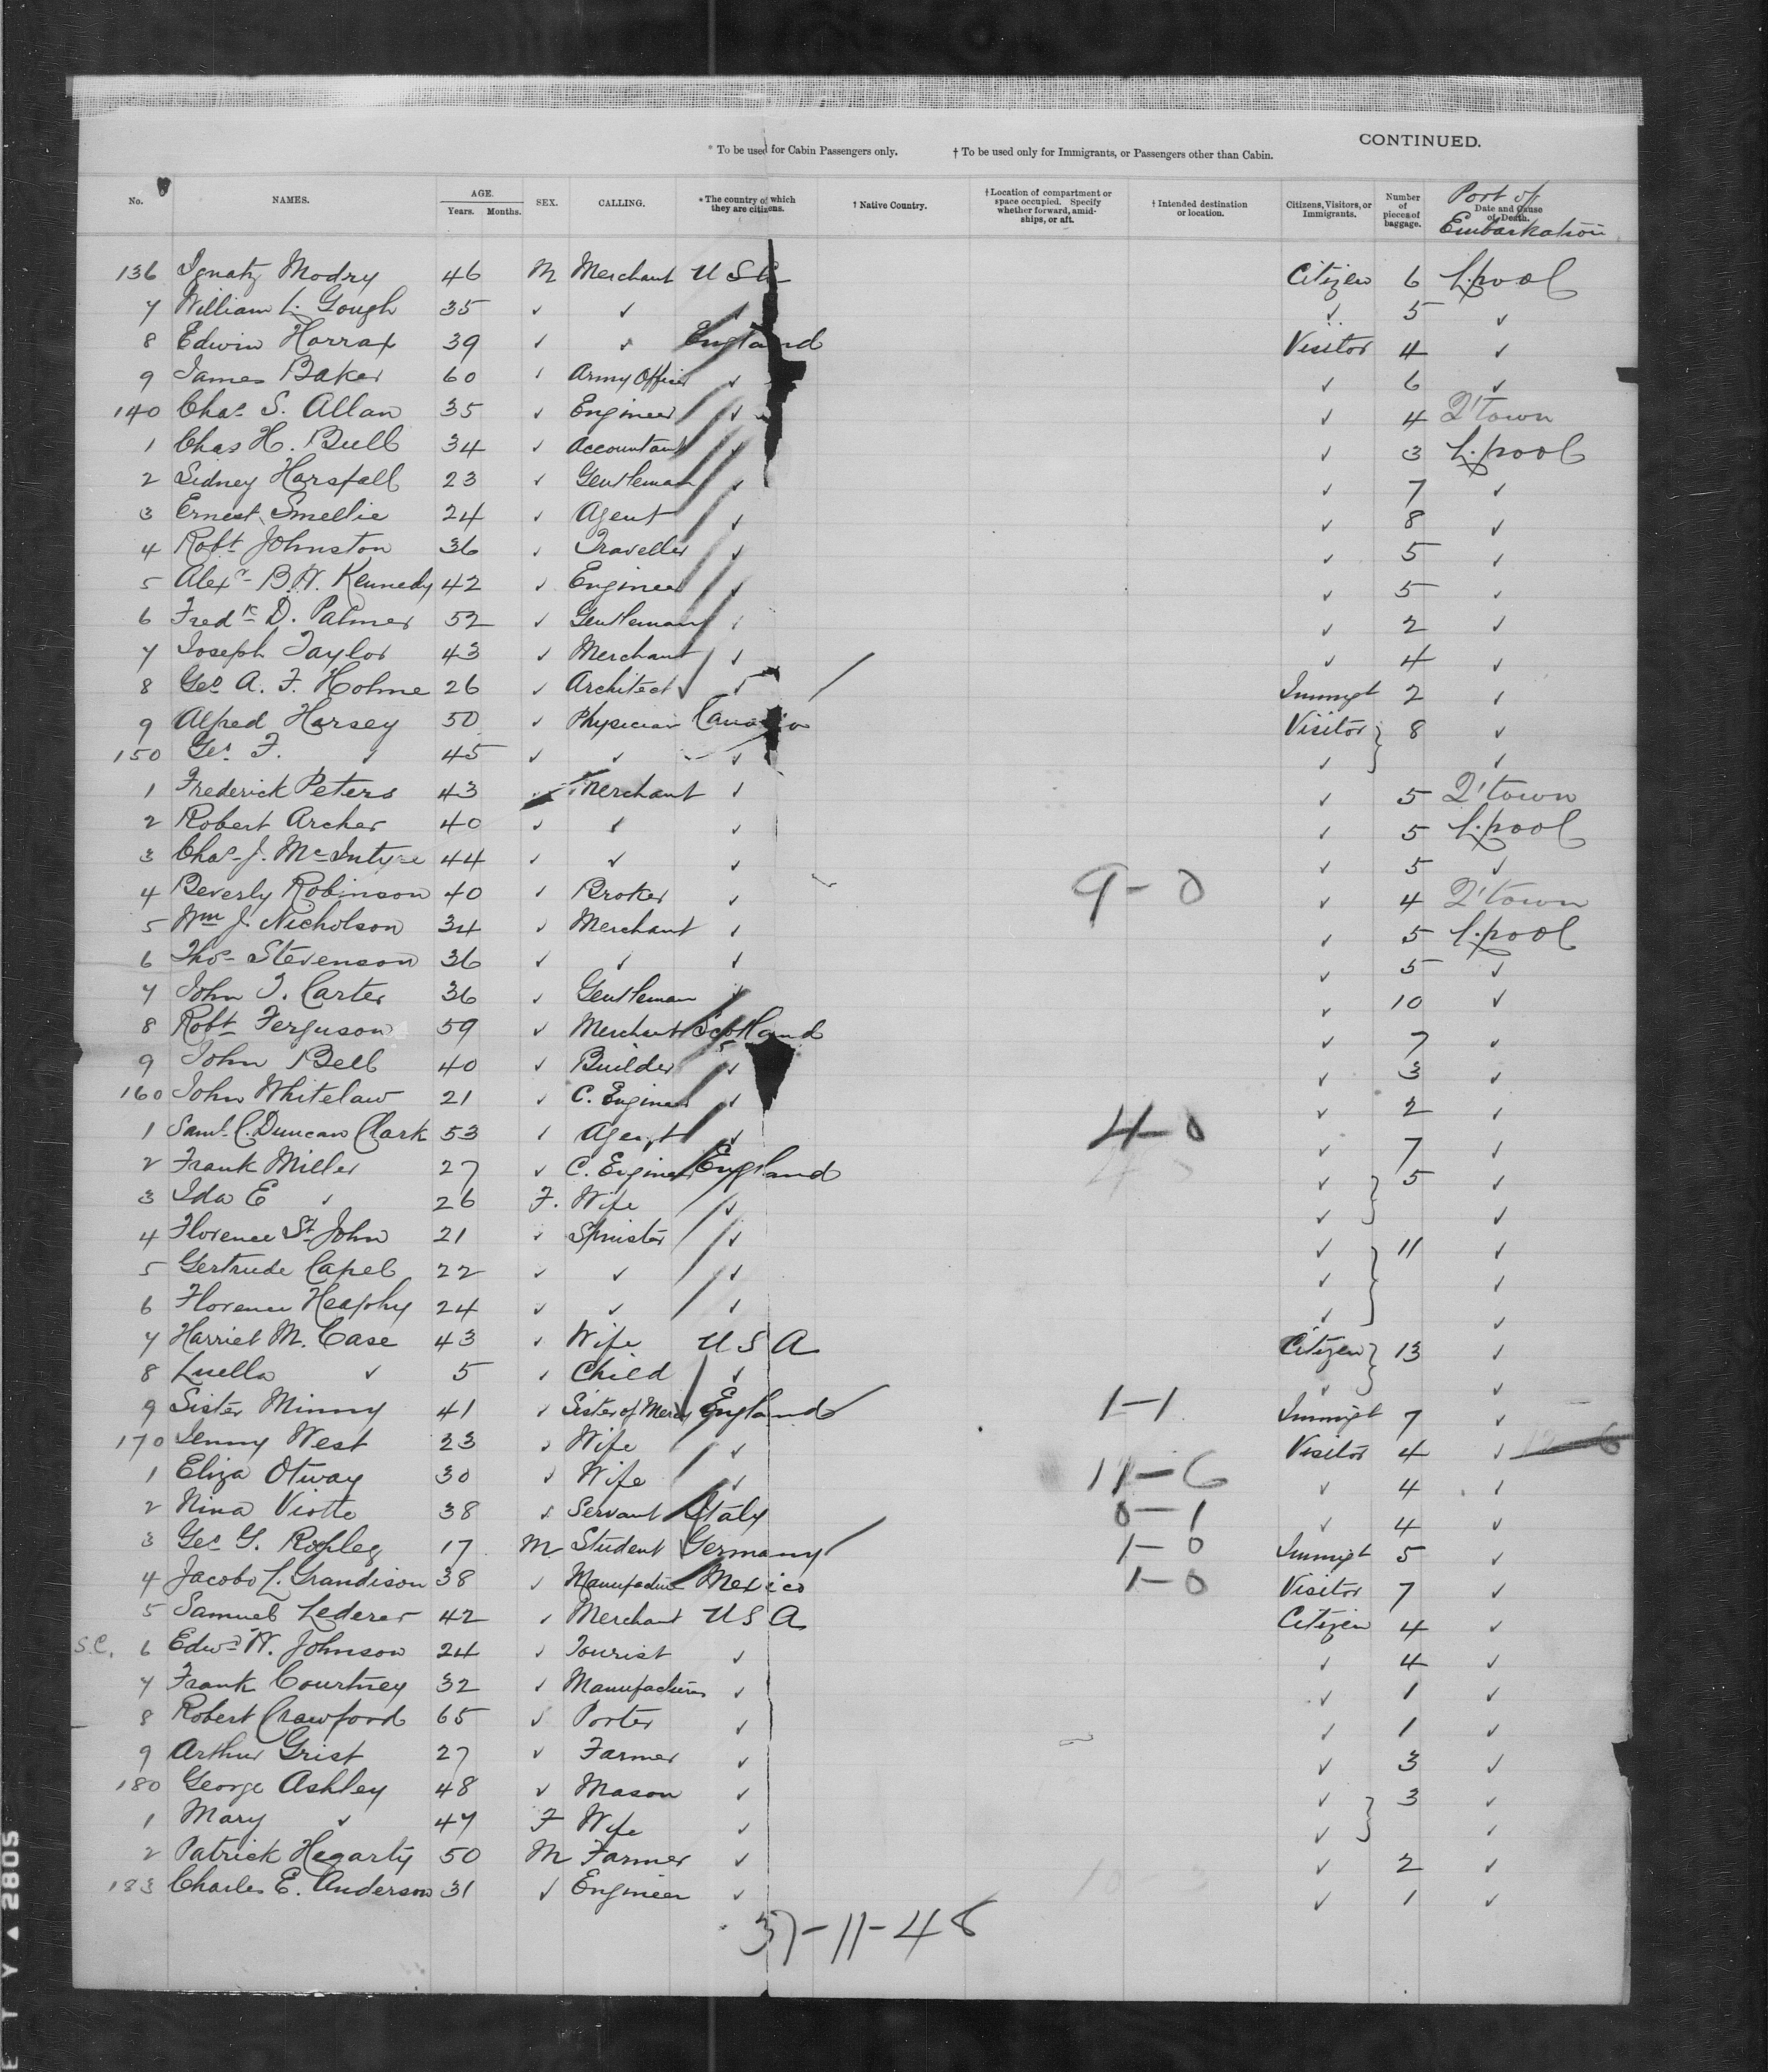 CONTINUED.
* To be used for Cabin Passengers only. † To be used only for Immigrants, or Passengers other than Cabin.
No. NAMES. AGE. Years. Months. SEX. CALLING. * The country of which they are citizens. † Native Country. † Location of compartment or space occupied. Specify whether forward, amidships, or aft. † Intended destination or location. Citizens, Visitors, or Immigrants. Number of pieces of baggage. Date and Cause of Death. Port of Embarkation
136 Ignatz Modry 46 M Merchant USA Citizen 6 L.pool
7 William L. Gough 35 ✓ ✓ ✓ 5 ✓
8 Edwin Harrax 39 ✓ ✓ England Visitor 4 ✓
9 James Baker 60 ✓ Army Officer ✓ ✓ 6 ✓
140 Chas S. Allan 35 ✓ Engineer ✓ ✓ 4 Q'town
1 Chas H. Bull 34 ✓ Accountant ✓ ✓ 3 L.pool
2 Sidney Horsfall 23 ✓ Gentleman ✓ ✓ 7 ✓
3 Ernest Smellie 24 ✓ Agent ✓ ✓ 8 ✓
4 Robt Johnston 36 ✓ Traveller ✓ ✓ 5 ✓
5 Alexr B.W. Kennedy 42 ✓ Engineer ✓ ✓ 5 ✓
6 Fredk D. Palmer 52 ✓ Gentleman ✓ ✓ 2 ✓
7 Joseph Taylor 43 ✓ Merchant ✓ ✓ 4 ✓
8 Geo A. F. Holme 26 ✓ Architect ✓ Immigt 2 ✓
9 Alfred Horsey 50 ✓ Physician Canada Visitor 8 ✓
150 Geo F. ✓ 45 ✓ ✓ ✓ ✓ ✓
1 Frederick Peters 43 Merchant ✓ ✓ 5 Q'town
2 Robert Archer 40 ✓ ✓ ✓ ✓ 5 L.pool
3 Chas J. McIntyre 44 ✓ ✓ ✓ ✓ 5 ✓
4 Beverly Robinson 40 ✓ Broker ✓ 9-0 ✓ 4 Q'town
5 Wm J. Nicholson 34 ✓ Merchant ✓ ✓ 5 L.pool
6 Thos Stevenson 36 ✓ ✓ ✓ ✓ 5 ✓
7 John T. Carter 36 ✓ Gentleman ✓ ✓ 10 ✓
8 Robt Ferguson 59 ✓ Merchant Scotland ✓ 7 ✓
9 John Bell 40 ✓ Builder ✓ ✓ 3 ✓
160 John Whitelaw 21 ✓ C. Engineer ✓ ✓ 2 ✓
1 Saml C. Duncan Clark 53 ✓ Agent ✓ 4-0 ✓ 7 ✓
2 Frank Miller 27 ✓ C. Engineer England ✓ 5 ✓
3 Ida E ✓ 26 F. Wife ✓ ✓ ✓
4 Florence St John 21 ✓ Spinster ✓ ✓ 11 ✓
5 Gertrude Capel 22 ✓ ✓ ✓ ✓ ✓
6 Florence Heaphy 24 ✓ ✓ ✓ ✓ ✓
7 Harriet M. Case 43 ✓ Wife USA Citizen 13 ✓
8 Luella ✓ 5 ✓ Child ✓ ✓ ✓
9 Sister Minny 41 ✓ Sister of Mercy England 1-1 Immigt 7 ✓
170 Jenny West 23 ✓ Wife ✓ Visitor 4 ✓
1 Eliza Otway 30 ✓ Wife ✓ 11-6 ✓ 4 ✓
2 Nina Viotto 38 ✓ Servant Italy 0-1 ✓ 4 ✓
3 Geo G. 17 M Student Germany 1-0 Immigt 5 ✓
4 Jacobo L. Grandison 38 ✓ Manufacturer Mexico 1-0 Visitor 7 ✓
5 Samuel Lederer 42 ✓ Merchant USA Citizen 4 ✓
S.C. 6 Edwd W. Johnson 24 ✓ Tourist ✓ ✓ 4 ✓
7 Frank Courtney 32 ✓ Manufacturer ✓ ✓ 1 ✓
8 Robert Crawford 65 ✓ Porter ✓ ✓ 1 ✓
9 Arthur Grist 27 ✓ Farmer ✓ ✓ 3 ✓
180 George Ashley 48 ✓ Mason ✓ ✓ 3 ✓
1 Mary ✓ 47 F Wife ✓ ✓ ✓
2 Patrick Hegarty 50 M Farmer ✓ ✓ 2 ✓
183 Charles E. Anderson 31 ✓ Engineer ✓ ✓ 1 ✓
37-11-48